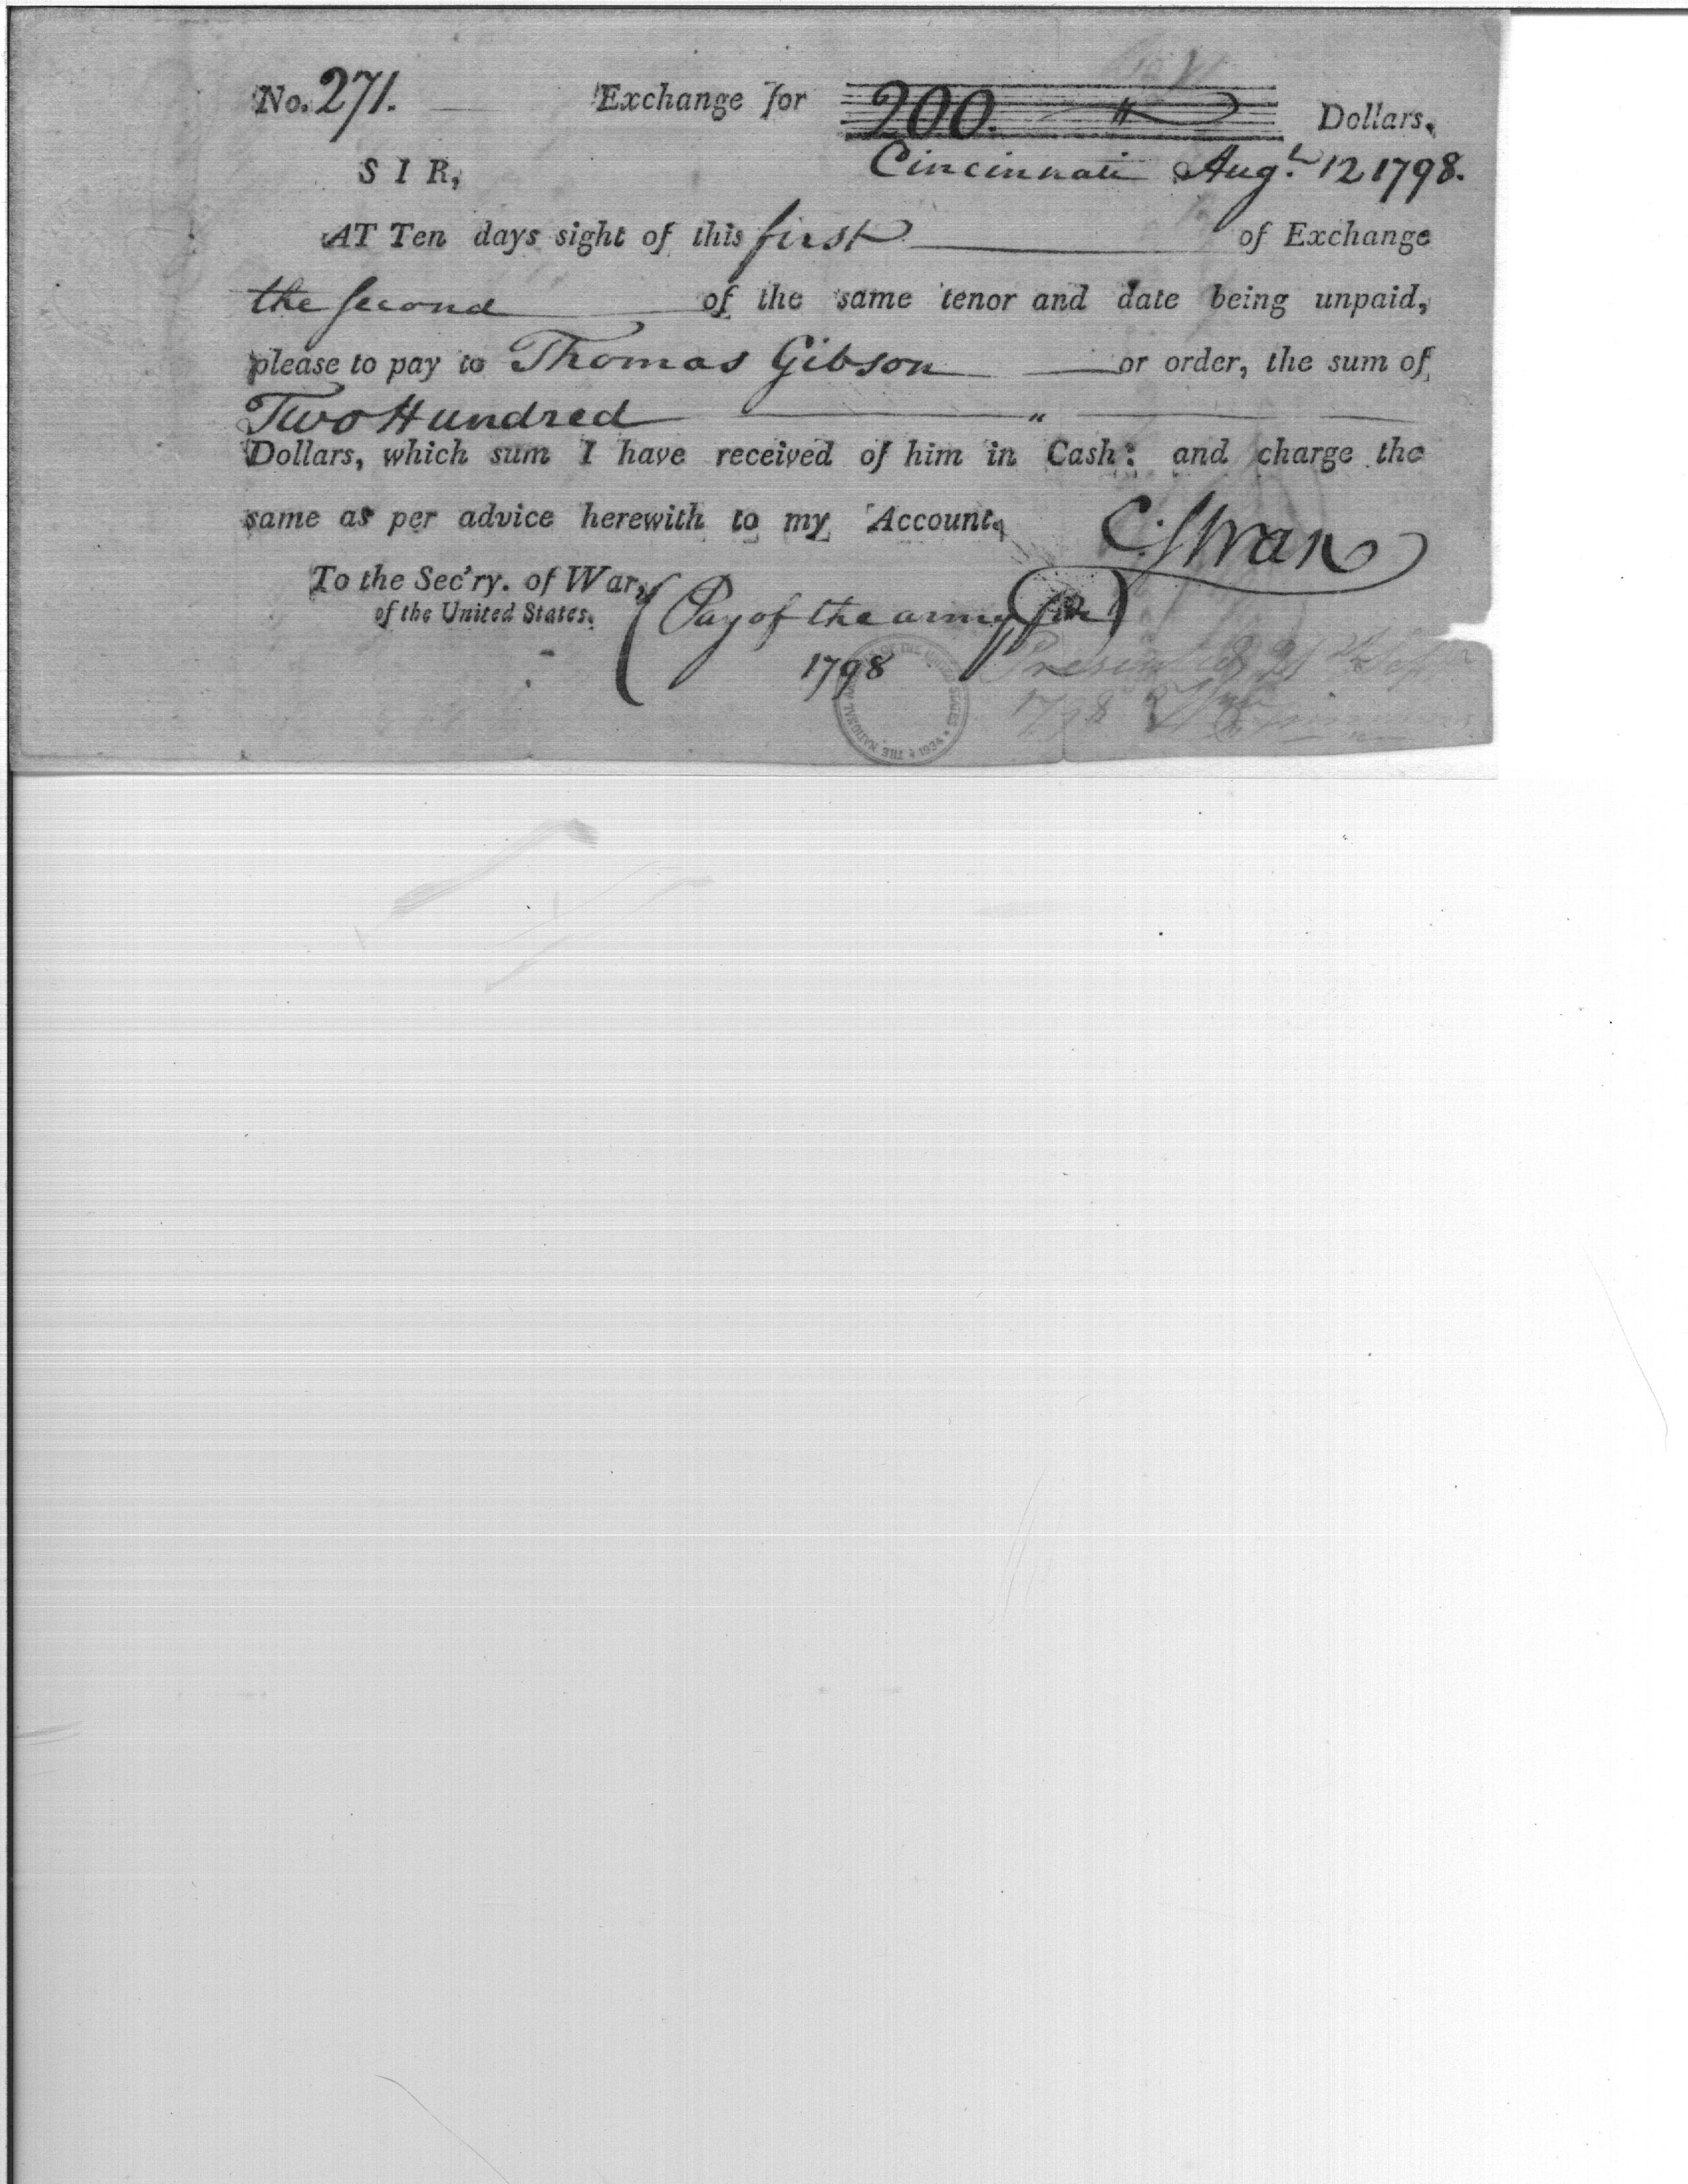 No. 271. Exchange for 200. " Dollars.
SIR, Cincinnati Augt. 12 1798.
AT Ten days sight of this first of Exchange
the second of the same tenor and date being unpaid,
please to pay to Thomas Gibson or order, the sum of
Two Hundred "
Dollars, which sum I have received of him in Cash: and charge the
same as per advice herewith to my Account.
C. Swan
To the Sec'ry. of War,
of the United States.
(Pay of the army for)
1798
Presented 21st Sept
1798
THE NATIONAL ARCHIVES OF THE UNITED STATES * 1934 *